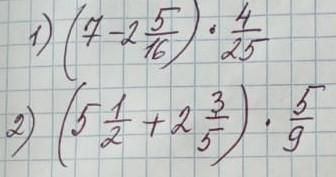 1) (7 - 2 5/16) · 4/25
2) (5 1/2 + 2 3/5) · 5/9